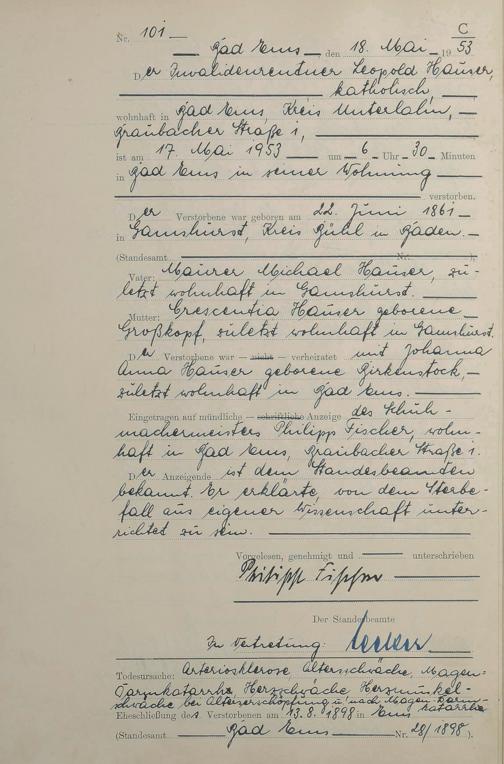 C
Nr. 101
Bad Ems, den 18. Mai 1953
Der Invalidenrentner Leopold Hauser,
katholisch,
wohnhaft in Bad Ems, Kreis Unterlahn,
Graubacher Straße 1,
ist am 17. Mai 1953 um 6 Uhr 30 Minuten
in Bad Ems in seiner Wohnung
verstorben.
Der Verstorbene war geboren am 22. Juni 1861
in Gamshurst, Kreis Bühl in Baden.
(Standesamt Nr. ),
Vater: Maurer Michael Hauser, zu-
letzt wohnhaft in Gamshurst.
Mutter: Crescentia Hauser geborene
Großkopf, zuletzt wohnhaft in Gamshurst.
Der Verstorbene war — nicht — verheiratet mit Johanna
Anna Hauser geborene Birkenstock,
zuletzt wohnhaft in Bad Ems.
Eingetragen auf mündliche — schriftliche Anzeige des Schuh-
machermeisters Philipp Fischer, wohn-
haft in Bad Ems, Graubacher Straße 1.
Der Anzeigende ist dem Standesbeamten
bekannt. Er erklärte, von dem Sterbe-
fall aus eigener Wissenschaft unter-
richtet zu sein.
Vorgelesen, genehmigt und unterschrieben
Philipp Fischer
Der Standesbeamte
In Vertretung:
Todesursache: Arteriosklerose, Altersschwäche, Magen-
Darmkatarrh, Herzschwäche Herzmuskel-
schwäche bei Alterserschöpfung u. nach Magen-Darm-
katarrh
Eheschließung des Verstorbenen am 13.8.1898 in Ems
(Standesamt Bad Ems Nr. 28/1898)